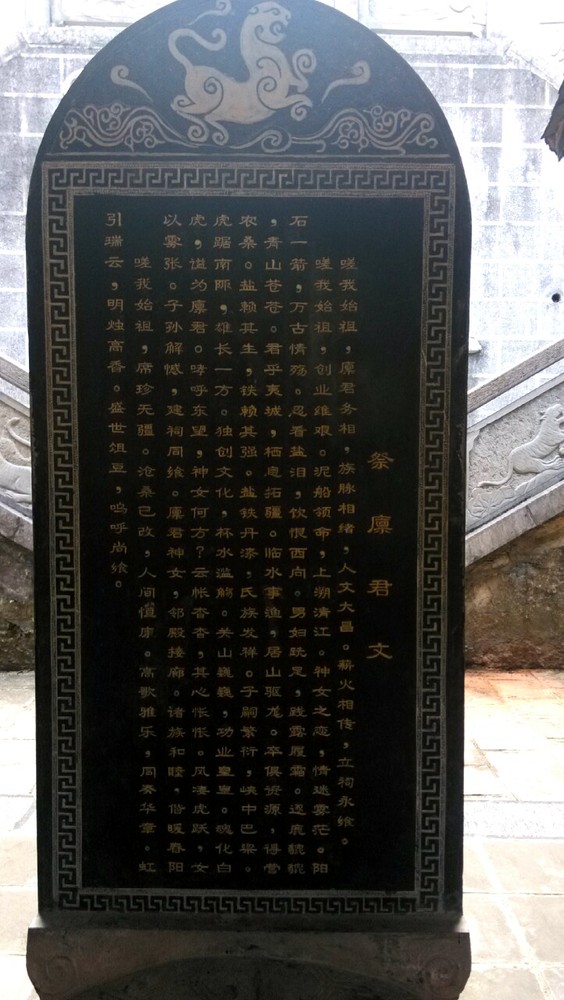 祭廪君文
嗟我始祖，廪君务相，族脉相绪，人文大昌。薪火相传，立祠永飨。
嗟我始祖，创业维艰。泥船领命，上溯清江。神女之恋，情迷雾茫。阳
石一箭，万古情殇。忍看盐泪，饮恨西向。男妇跣足，践露履霜。逐鹿虢虢
，青山苍苍。君乎夷城，栖息拓疆。临水事渔，居山驱尨。卒俱资源，得营
农桑。盐赖其生，铁赖其强。盐铁丹漆，氏族发祥。子嗣繁衍，峡中巴梁。
虎踞南陲，雄长一方。独创文化，杯水滥觞。关山巍巍，功业皇皇。魂化白
虎，谥为廪君。哮呼东望，神女何方？云帐杳杳，其心怅怅。风凄虎跃，女
以雾张。子孙解憾，建祠同飨。廪君神女，邻殿接廊。诸族和睦，偕暖春阳
嗟我始祖，席珍无疆。沧桑已改，人间恒康。高歌雅乐，同奏华章。虹
引瑞云，明烛高香。盛世俎豆，呜呼尚飨。